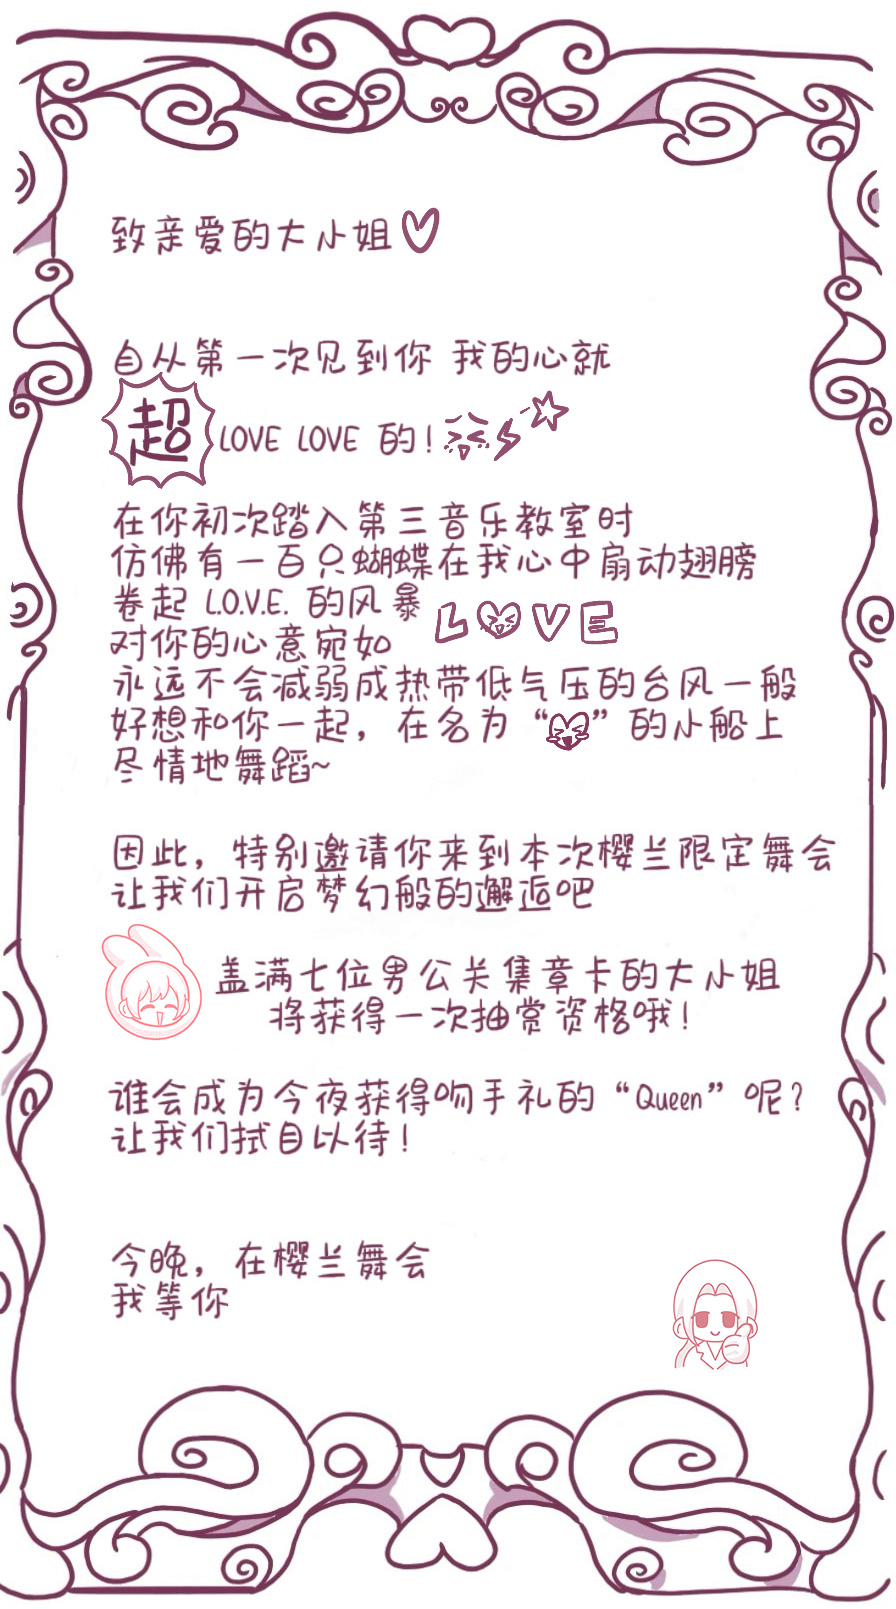 致亲爱的大小姐
自从第一次见到你 我的心就
超 LOVE LOVE 的！
在你初次踏入第三音乐教室时
仿佛有一百只蝴蝶在我心中扇动翅膀
卷起 L.O.V.E. 的风暴
LOVE
对你的心意宛如
永远不会减弱成热带低气压的台风一般
好想和你一起，在名为“”的小船上
尽情地舞蹈~
因此，特别邀请你来到本次樱兰限定舞会
让我们开启梦幻般的邂逅吧
盖满七位男公关集章卡的大小姐
将获得一次抽赏资格哦！
谁会成为今夜获得吻手礼的“Queen”呢？
让我们拭目以待！
今晚，在樱兰舞会
我等你